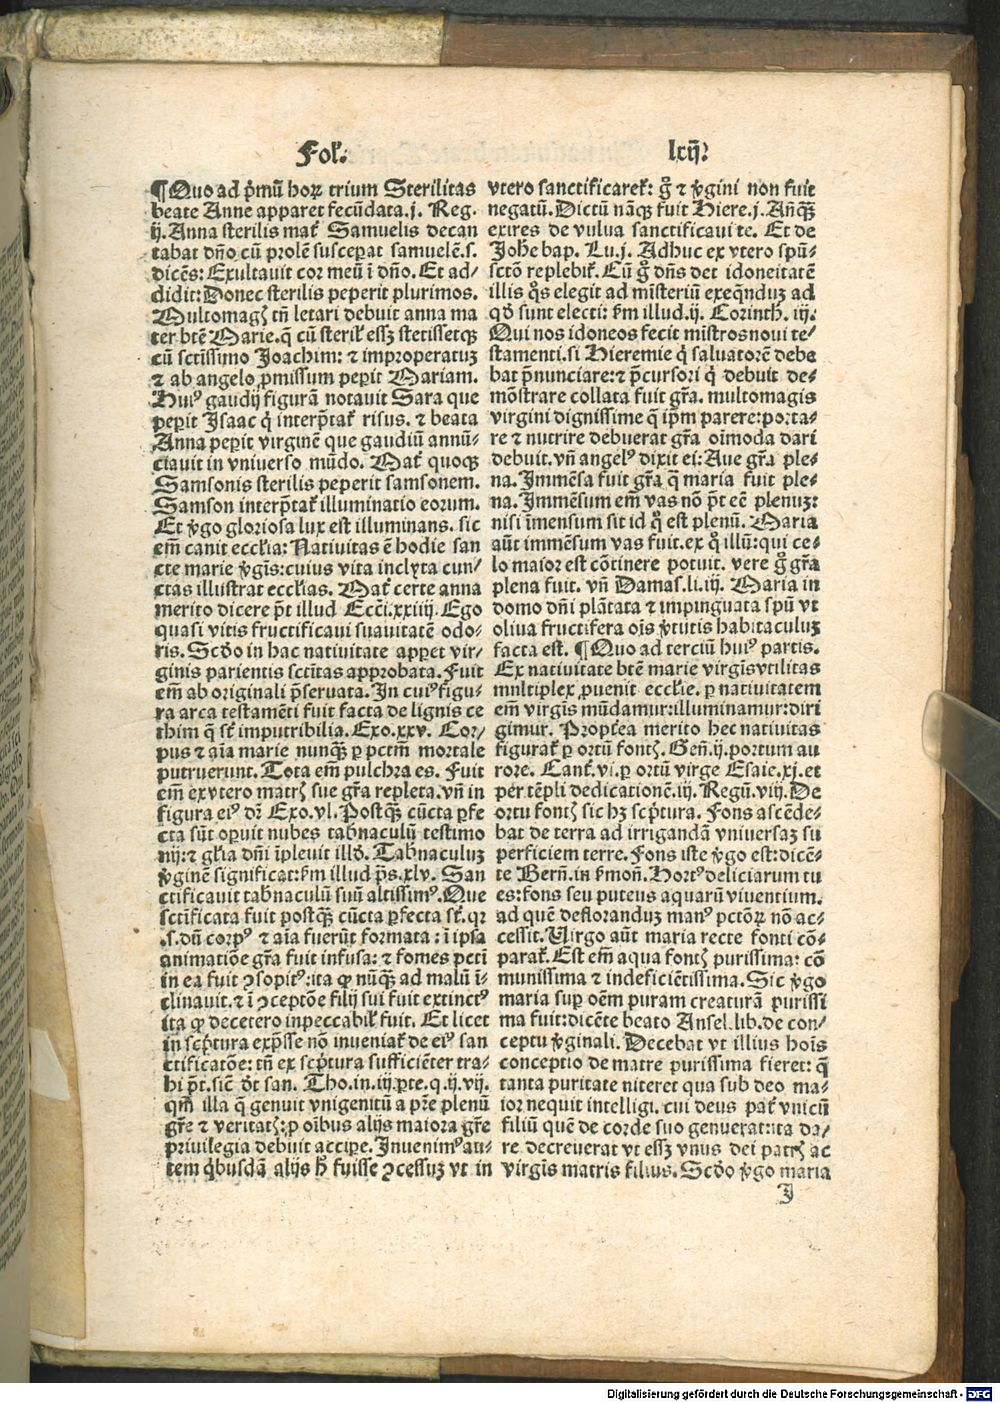 Fol. lxij
¶Quo ad pͥmū hoꝝ trium Sterilitas
beate Anne apparet fecūdata.j. Reg.
ij. Anna sterilis mat̄ Samuelis decan
tabat dn̄o cū prolē suscepat samuelē.s.
dicēs: Exultauit cor meū ī dn̄o. Et ad/
didit: Donec sterilis peperit plurimos.
Multomagꝭ tn̄ letari debuit anna ma
ter btē Marie.q̄ cū steril̕ essꝫ stetissetqꝫ
cū sctīssimo Joachim: ⁊ improperatuꝫ
⁊ ab angelo ꝓmissum peꝑit Mariam.
Huiꝰ gaudij figurā notauit Sara que
peꝑit Isaac qͥ interp̄tat̄ risus. ⁊ beata
Anna peꝑit virginē que gaudiū annū-
ciauit in vniuerso mūdo. Mat̄ quoqꝫ
Samsonis sterilis peperit samsonem.
Samson interp̄tat̄ illuminatio eorum.
Et ꝟgo gloriosa lux est illuminans. sic
em̄ canit eccl̕ia: Natiuitas ē hodie san
cte marie ꝟgīs: cuius vita inclyta cun/
ctas illustrat eccl̕ias. Mat̄ certe anna
merito dicere p̄t illud Ecc̄i.xxiiij. Ego
quasi vitis fructificaui suauitatē odo-
ris. Scd̕o in hac natiuitate apꝑet vir-
ginis parientis sctītas approbata. Fuit
em̄ ab originali p̄seruata. In cuiꝰ figu-
ra arca testamēti fuit facta de lignis ce
thim q̄ st̄ imputribilia. Exo.xxv. Cor/
pus ⁊ aīa marie nunqꝫ̄ ꝑ pctm̄ mortale
putruerunt. Tota em̄ pulchra es. Fuit
em̄ ex vtero matrꝭ sue gr̄a repleta. vn̄ in
figura eiꝰ dr̄ Exo.xl. Postqꝫ̄ cūcta ꝑfe
cta sūt oꝑuit nubes tab̄naculū testimo
nij: ⁊ gl̕ia dn̄i īpleuit illd̕. Tab̄naculuꝫ
ꝟginē significat: ẜm illud ps̄.xlv. San
ctificauit tab̄naculū suū altissimꝰ. Que
sctīficata fuit postqꝫ̄ cūcta ꝑfecta st̄. qꝛ
.s. dū corpꝰ ⁊ aīa fuerūt formata: ī ipsa
animatiōe gr̄a fuit infusa: ⁊ fomes pctī
in ea fuit ꝯsopitꝰ: ita ꝙ nūqꝫ̄ ad malū ī-
clinauit. ⁊ ī ꝯceptōe filij sui fuit extinctꝰ
ita ꝙ decetero inpeccabil̕ fuit. Et licet
in scpͥtura exp̄sse nō inueniat̄ de eiꝰ san
ctificatōe: tn̄ ex scpͥtura sufficiēter tra-
hi p̄t. sic̄ d̕t san. Tho. in.iij.ꝑte.q.ij.vij.
qm̄ illa q̄ genuit vnigenitū a pr̄e plenū
gr̄e ⁊ veritatꝭ: ꝓ oībus alijs maiora gr̄e
priuilegia debuit acciꝑe. Inuenimꝰ au-
tem qͥbusdā alijs h̕ fuisse ꝯcessuꝫ vt in
vtero sanctificarēt̄: gͦ ⁊ ꝟgini non fuit
negatū. Dictū nāqꝫ fuit Hiere.j. An̄qꝫ̄
exires de vulua sanctificaui te. Et de
Joh̄e bap. Lu.j. Adhuc ex vtero spū-
sctō replebit̄. Cū gͦ dn̄s det idoneitatē
illis qͦs elegit ad mīsteriū exeqn̄duꝫ ad
qd̕ sunt electi: ẜm illud.ij. Corinth. iij.
Qui nos idoneos fecit mīstros noui te-
stamenti. si Hieremie qͥ saluatorē debe
bat p̄nunciare: ⁊ p̄cursori qͥ debuit de-
mōstrare collata fuit gr̄a. multomagis
virgini dignissime q̄ ipm̄ parere: porta-
re ⁊ nutrire debuerat gr̄a oīmoda dari
debuit. vn̄ angelꝰ dixit ei: Aue gr̄a ple-
na. Immēsa fuit gr̄a q̄ maria fuit ple-
na. Immēsum em̄ vas nō p̄t eē plenuꝫ:
nisi īmensum sit id qͦ est plenū. Maria
aūt immēsum vas fuit. ex qͦ illū: qui ce-
lo maior est cōtinere potuit. vere gͦ gr̄a
plena fuit. vn̄ Damas.li.iij. Maria in
domo dn̄i plātata ⁊ impinguata spū vt
oliua fructifera oīs ꝟtutis habitaculuꝫ
facta est. ¶Quo ad terciū huiꝰ partis.
Ex natiuitate btē marie virgīs vtilitas
multiplex ꝓuenit eccl̕ie. ꝑ natiuitatem
em̄ virgīs mūdamur: illuminamur: diri
gimur. Propt̄ea merito hec natiuitas
figurat̄ ꝑ ortū fontꝭ. Gen̄.ij. ꝑ ortum au
rore. Cant̄.vi. ꝑ ortū virge Esaie.xj. et
per tēpli dedicationē.iij. Regū.viij. De
ortu fontꝭ sic hꝫ scpͥtura. Fons ascēde-
bat de terra ad irrigandā vniuersaꝫ su
perficiem terre. Fons iste ꝟgo est: dicē-
te Bern̄. in ẜmon̄. Hortꝰ deliciarum tu
es: fons seu puteus aquarū viuentium.
ad quē defloranduꝫ manꝰ pctōꝝ nō ac-
cessit. Virgo aūt maria recte fonti cō-
parat̄. Est em̄ aqua fontꝭ purissima: cō
munissima ⁊ indeficiētissima. Sic ꝟgo
maria suꝑ oēm puram creaturā purissi
ma fuit: dicēte beato Ansel. lib. de con/
ceptu ꝟginali. Decebat vt illius hoīs
conceptio de matre purissima fieret: q̄
tanta puritate niteret qua sub deo ma-
ior nequit intelligi. cui deus pat̄ vnicū
filiū quē de corde suo genuerat: ita da/
re decreuerat vt essꝫ vnus dei patrꝭ ac
virgīs matris filius. Scd̕o ꝟgo maria
J
Digitalisierung gefördert durch die Deutsche Forschungsgemeinschaft - DFG